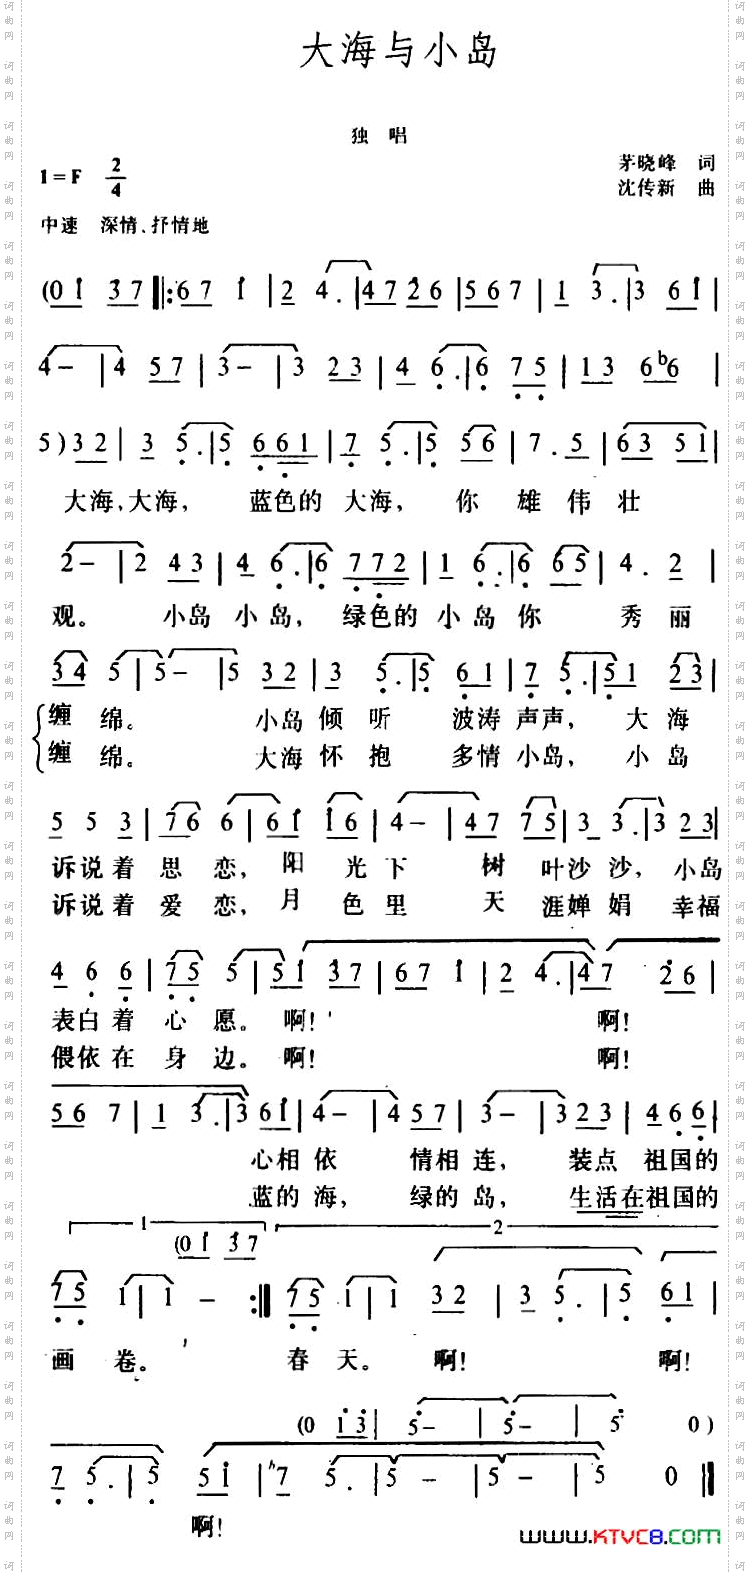 大海与小岛
独 唱
1=F 2/4
茅晓峰 词
沈传新 曲
中速 深情、抒情地
(0 1 3 7 ‖: 6 7 1 | 2 4. | 4 7 2 6 | 5 6 7 | 1 3. | 3 6 1 |
4 - | 4 5 7 | 3 - | 3 2 3 | 4 6. | 6 7 5 | 1 3 6 b6 |
5) 3 2 | 3 5. | 5 6 6 1 | 7 5. | 5 5 6 | 7. 5 | 6 3 5 1 |
大海,大海, 蓝色的 大海, 你 雄 伟 壮
2 - | 2 4 3 | 4 6. | 6 7 7 2 | 1 6. | 6 6 5 | 4. 2 |
观。 小岛 小岛, 绿色的 小岛 你 秀 丽
3 4 5 | 5 - | 5 3 2 | 3 5. | 5 6 1 | 7 5. | 5 1 2 3 |
缠 绵。 小岛 倾 听 波涛 声声, 大 海
缠 绵。 大海 怀 抱 多情 小岛, 小 岛
5 5 3 | 7 6 6 | 6 1 1 6 | 4 - | 4 7 7 5 | 3 3. | 3 2 3 |
诉说着 思 恋, 阳 光 下 树 叶沙 沙, 小岛
诉说着 爱 恋, 月 色 里 天 涯婵 娟 幸福
4 6 6 | 7 5 5 | 5 1 3 7 | 6 7 1 | 2 4. | 4 7 2 6 |
表白着 心 愿。 啊! 啊!
偎依在 身 边。 啊! 啊!
5 6 7 | 1 3. | 3 6 1 | 4 - | 4 5 7 | 3 - | 3 2 3 | 4 6 6 |
心相 依 情相 连, 装点 祖国的
蓝的 海, 绿的 岛, 生活在祖国的
1 2
(0 1 3 7
7 5 1 | 1 - :‖ 7 5 1 | 1 3 2 | 3 5. | 5 6 1 |
画 卷。 春 天。 啊! 啊!
(0 1 3 | 5 - | 5 - | 5 0)
7 5. | 5 5 1 | 7 5 | 5 - | 5 - | 5 0 ‖
啊!
www.KTVC8.com
词曲网